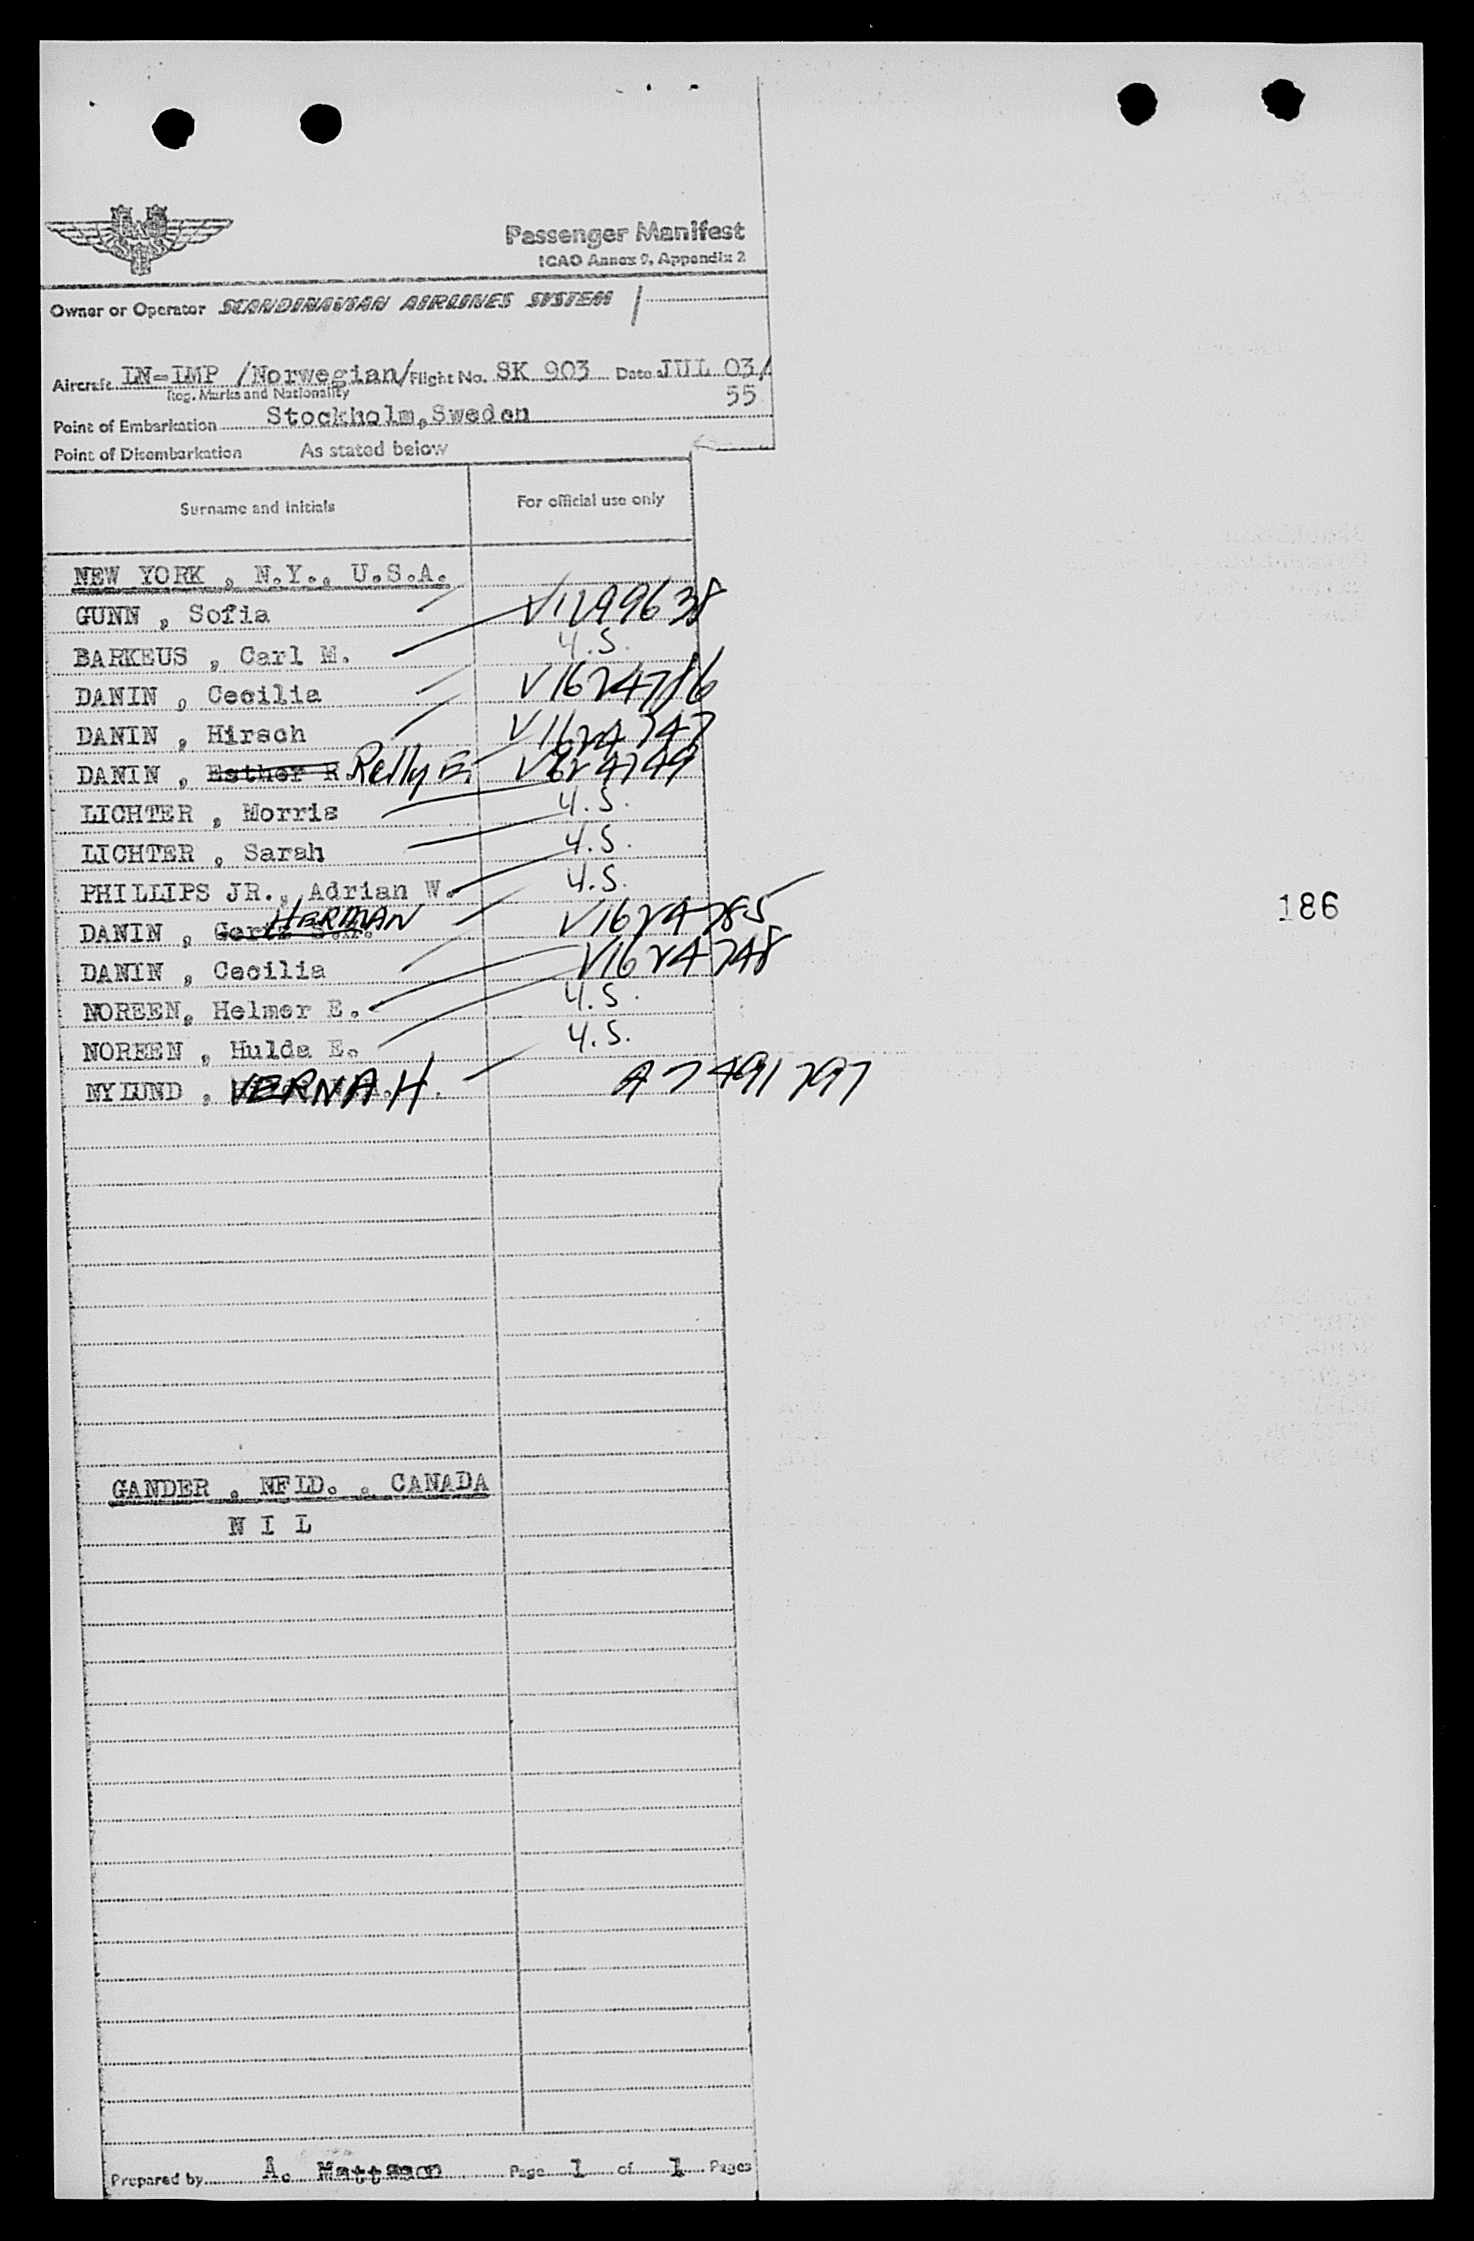 Passenger Manifest
ICAO Annex 9, Appendix 2
Owner or Operator SCANDINAVIAN AIRLINES SYSTEM
Aircraft LN-IMP /Norwegian/ Flight No. SK 903 Date JUL 03/
Reg. Marks and Nationality 55
Point of Embarkation Stockholm, Sweden
Point of Disembarkation As stated below
Surname and initials For official use only
NEW YORK , N.Y., U.S.A.
GUNN , Sofia V1299638
BARKEUS , Carl M. U.S.
DANIN , Cecilia
DANIN , Hirsch V1624747
DANIN , Esther R Relly E.
LICHTER , Morris U.S.
LICHTER , Sarah U.S.
PHILLIPS JR., Adrian W. U.S.
DANIN , HERMAN V1624785
186
DANIN , Cecilia V1624748
NOREEN, Helmer E. U.S.
NOREEN , Hulda E. U.S.
NYLUND , VERNA H. A7491797
GANDER , NFLD. , CANADA
N I L
Prepared by Å. Mattsson Page 1 of 1 Pages